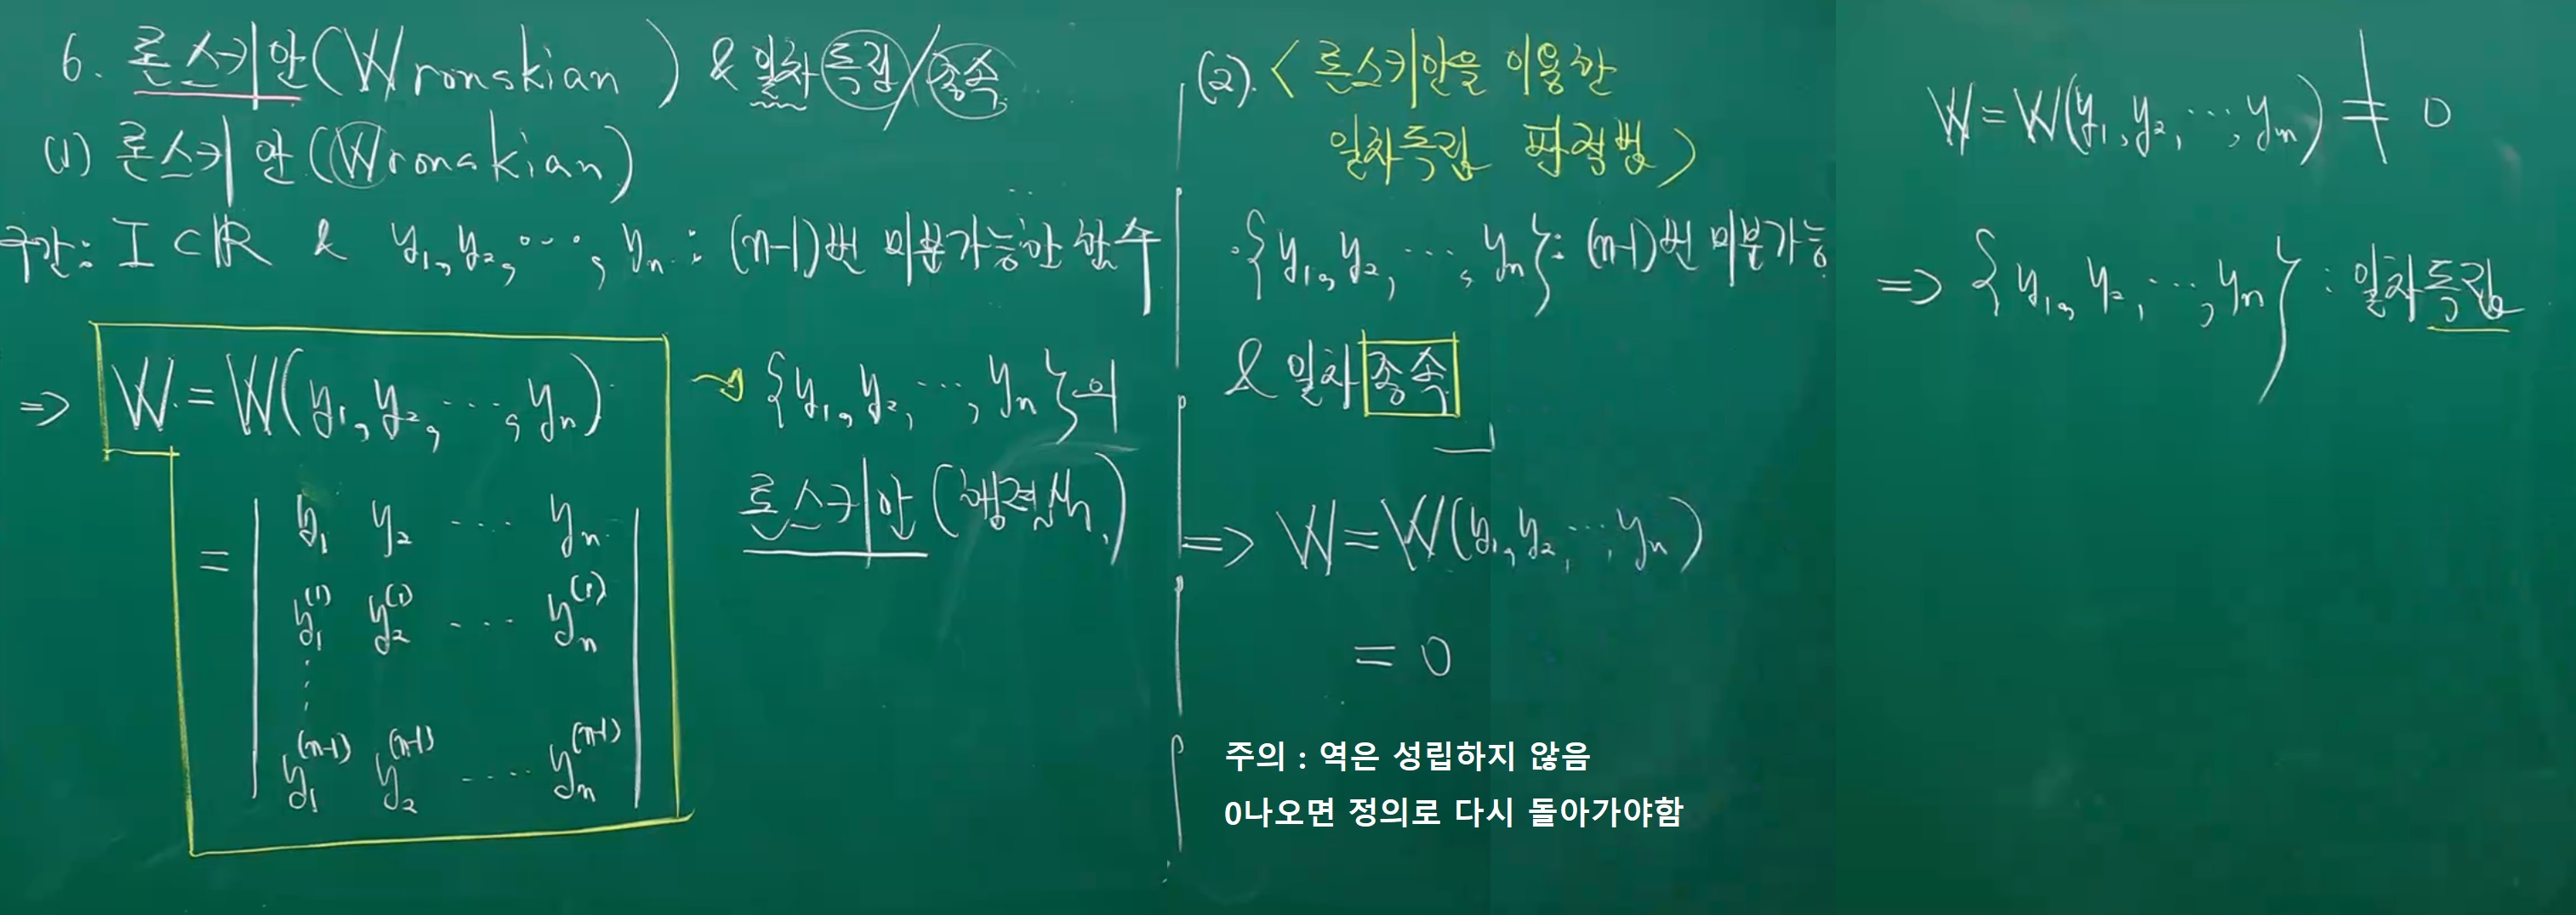 6. 론스키안(Wronskian) & 일차 독립/종속
(1) 론스키안(Wronskian)
구간: I ⊂ ℝ & y₁, y₂, ⋯, yₙ : (n-1)번 미분가능한 함수
⇒ W = W(y₁, y₂, ⋯, yₙ)
= | y₁ y₂ ⋯ yₙ |
| y₁⁽¹⁾ y₂⁽¹⁾ ⋯ yₙ⁽¹⁾ |
⋮
| y₁⁽ⁿ⁻¹⁾ y₂⁽ⁿ⁻¹⁾ ⋯ yₙ⁽ⁿ⁻¹⁾ |
→ {y₁, y₂, ⋯, yₙ}의
론스키안(행렬식)
(2). <론스키안을 이용한
일차독립 판정법>
·{y₁, y₂, ⋯, yₙ}: (n-1)번 미분가능
& 일차종속
⇒ W = W(y₁, y₂, ⋯, yₙ)
= 0
주의 : 역은 성립하지 않음
0나오면 정의로 다시 돌아가야함
W = W(y₁, y₂, ⋯, yₙ) ≠ 0
⇒ {y₁, y₂, ⋯, yₙ} : 일차독립